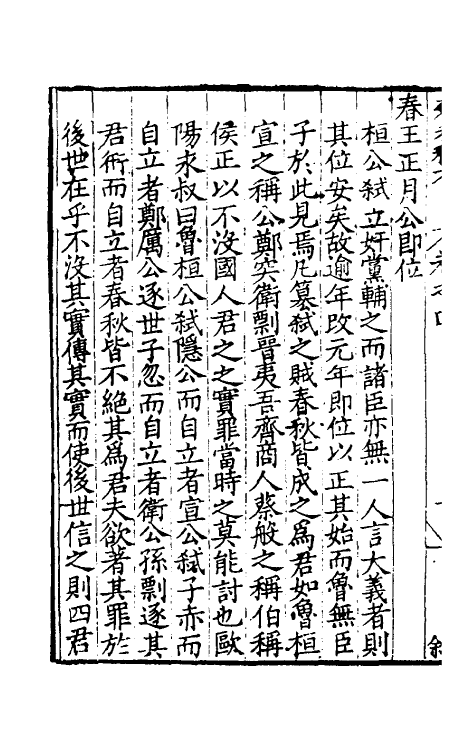 春王正月公即位
桓公弑立奸黨輔之而諸臣亦無一人言大義者則
其位安矣故逾年改元年即位以正其始而魯無臣
子於此見焉凡篡弑之賊春秋皆成之爲君如魯桓
宣之稱公鄭突衛剽晋夷吾齊商人蔡般之稱伯稱
侯正以不沒國人君之之實罪當時之莫能討也歐
陽永叔曰魯桓公弑隱公而自立者宣公弑子赤而
自立者鄭厲公逐世子忽而自立者衛公孫剽逐其
君衎而自立者春秋皆不絕其爲君夫欲著其罪於
後世在乎不沒其實傳其實而使後世信之則四君